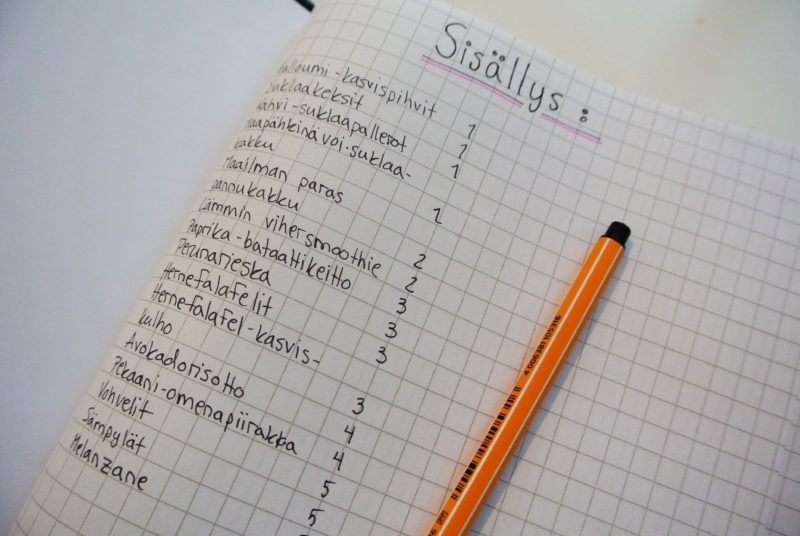 Sisällys :
Halloumi-kasvispihvit 1
Suklaakeksit 1
Kahvi-suklaapallerot 1
Maapähkinävoi-suklaa-
kakku 2
Maailman paras
pannukakku 2
Lämmin vihersmoothie 2
Paprika-bataattikeitto 3
Perunarieska 3
Hernefalafelit 3
Hernefalafel-kasvis-
kulho 3
Avokadorisotto 4
Pekaani-omenapiirakka 4
Vohvelit 5
Sämpylät 5
Melanzane
4 006381 105316